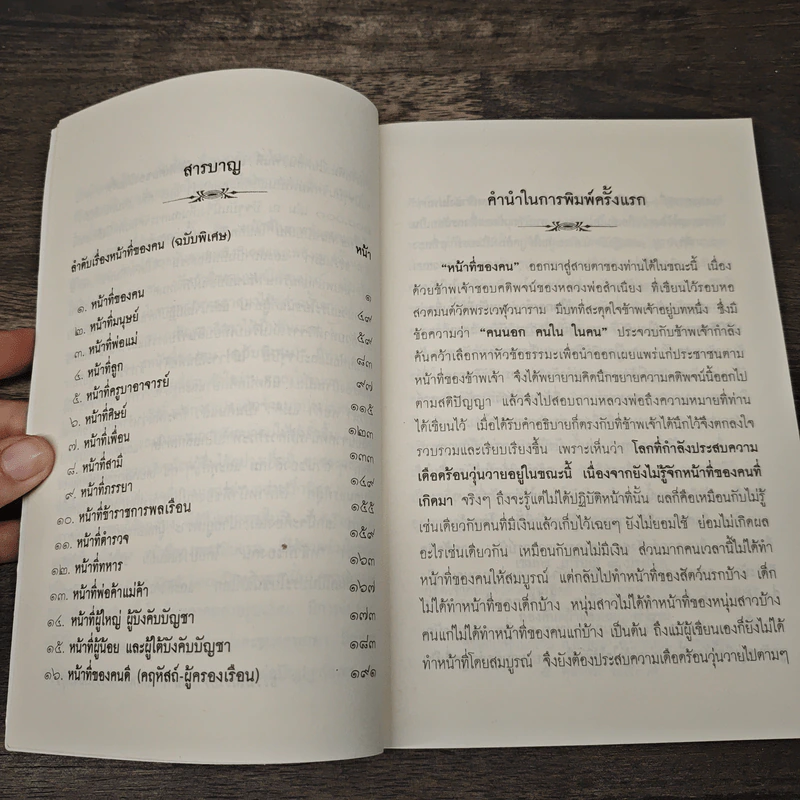 สารบาญ
ลำดับเรื่องหน้าที่ของคน (ฉบับพิเศษ) หน้า
๑. หน้าที่ของคน ๑
๒. หน้าที่มนุษย์ ๔๗
๓. หน้าที่พ่อแม่ ๕๗
๔. หน้าที่ลูก ๘๓
๕. หน้าที่ครูบาอาจารย์ ๙๗
๖. หน้าที่ศิษย์ ๑๑๕
๗. หน้าที่เพื่อน ๑๒๓
๘. หน้าที่สามี ๑๓๓
๙. หน้าที่ภรรยา ๑๔๙
๑๐. หน้าที่ข้าราชการพลเรือน ๑๕๕
๑๑. หน้าที่ตำรวจ ๑๕๙
๑๒. หน้าที่ทหาร ๑๖๓
๑๓. หน้าที่พ่อค้าแม่ค้า ๑๖๗
๑๔. หน้าที่ผู้ใหญ่ ผู้บังคับบัญชา ๑๗๓
๑๕. หน้าที่ผู้น้อย และผู้ใต้บังคับบัญชา ๑๘๓
๑๖. หน้าที่ของคนดี (คฤหัสถ์-ผู้ครองเรือน) ๑๙๑
คำนำในการพิมพ์ครั้งแรก
“หน้าที่ของคน” ออกมาสู่สายตาของท่านได้ในขณะนี้ เนื่อง
ด้วยข้าพเจ้าชอบคติพจน์ของหลวงพ่อสำเนียง ที่เขียนไว้รอบหอ
สวดมนต์วัดพระเวฬุวนาราม มีบทที่สะดุดใจข้าพเจ้าอยู่บทหนึ่ง ซึ่งมี
ข้อความว่า “คนนอก คนใน ในคน” ประจวบกับข้าพเจ้ากำลัง
ค้นคว้าเลือกหาหัวข้อธรรมะเพื่อนำออกเผยแพร่แก่ประชาชนตาม
หน้าที่ของข้าพเจ้า จึงได้พยายามคิดนึกขยายความคติพจน์นี้ออกไป
ตามสติปัญญา แล้วจึงไปสอบถามหลวงพ่อถึงความหมายที่ท่าน
ได้เขียนไว้ เมื่อได้รับคำอธิบายก็ตรงกับที่ข้าพเจ้าได้นึกไว้จึงตกลงใจ
รวบรวมและเรียบเรียงขึ้น เพราะเห็นว่า โลกที่กำลังประสบความ
เดือดร้อนวุ่นวายอยู่ในขณะนี้ เนื่องจากยังไม่รู้จักหน้าที่ของคนที่
เกิดมา จริงๆ ถึงจะรู้แต่ไม่ได้ปฏิบัติหน้าที่นั้น ผลก็คือเหมือนกับไม่รู้
เช่นเดียวกับคนที่มีเงินแล้วเก็บไว้เฉยๆ ยังไม่ยอมใช้ ย่อมไม่เกิดผล
อะไรเช่นเดียวกัน เหมือนกับคนไม่มีเงิน ส่วนมากคนเวลานี้ไม่ได้ทำ
หน้าที่ของคนให้สมบูรณ์ แต่กลับไปทำหน้าที่ของสัตว์นรกบ้าง เด็ก
ไม่ได้ทำหน้าที่ของเด็กบ้าง หนุ่มสาวไม่ได้ทำหน้าที่ของหนุ่มสาวบ้าง
คนแก่ไม่ได้ทำหน้าที่ของคนแก่บ้าง เป็นต้น ถึงแม้ผู้เขียนเองก็ยังไม่ได้
ทำหน้าที่โดยสมบูรณ์ จึงยังต้องประสบความเดือดร้อนวุ่นวายไปตามๆ